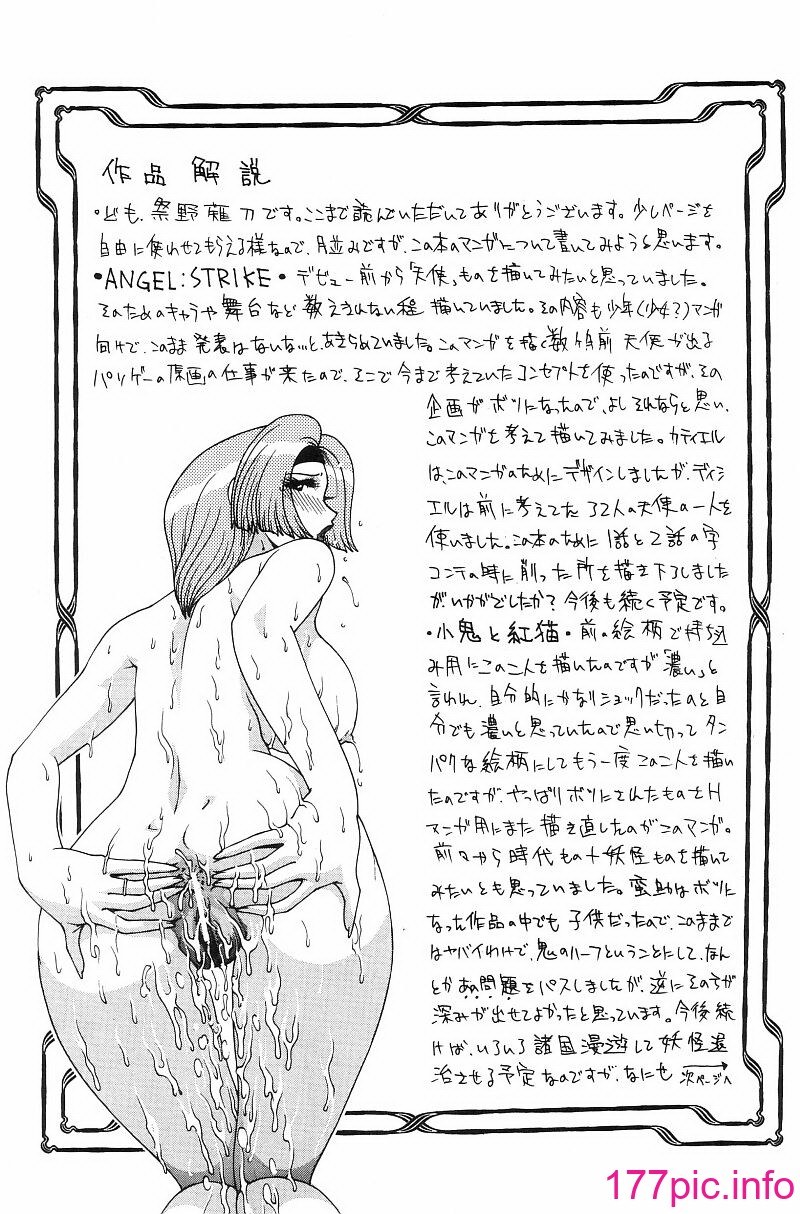 作品解説
・ども、祭野薙刀です。ここまで読んでいただいてありがとうございます。少しページを
自由に使わせてもらえる様なので、月並みですが、この本のマンガについて書いてみようと思います。
・ANGEL:STRIKE・デビュー前から「天使」ものを描いてみたいと思っていました。
そのためのキャラや舞台など数えきれない程描いていました。その内容も少年(少女?)マンガ
向けで、このまま発表はないな、と、あきらめていました。このマンガを描く数ヶ月前 天使が出る
パソゲーの原画の仕事が来たので、そこで今まで考えていたコンセプトを使ったのですが、その
企画がボツになったので、よしそれならと思い、
このマンガを考えて描いてみました。カティエル
は、このマンガのためにデザインしましたが、ディシ
エルは前に考えてた32人の天使の一人を
使いました。この本のために1話と2話の字
コンテの時に削った所を描き下ろしました
がいかがでしたか?今後も続く予定です。
・小鬼と紅猫・前の絵柄で持ち込
み用にこの二人を描いたのですが「濃い」と
言われ、自分的にかなりショックだったのと自
分でも濃いと思っていたので思い切ってタン
パクな絵柄にしてもう一度この二人を描い
たのですが、やっぱりボツにされたものをH
マンガ用にまた描き直したのがこのマンガ。
前々から時代もの+妖怪ものを描いて
みたいとも思っていました。蛮助はボツに
なった作品の中でも子供だったので、このままで
はヤバイわけで、鬼のハーフということにして、なん
とかあの問題をパスしましたが、逆にその方が
深みが出せてよかったと思っています。今後続
けば、いろいろ諸国漫遊して妖怪退
治させる予定なのですが、なにも 次ページへ
177pic.info